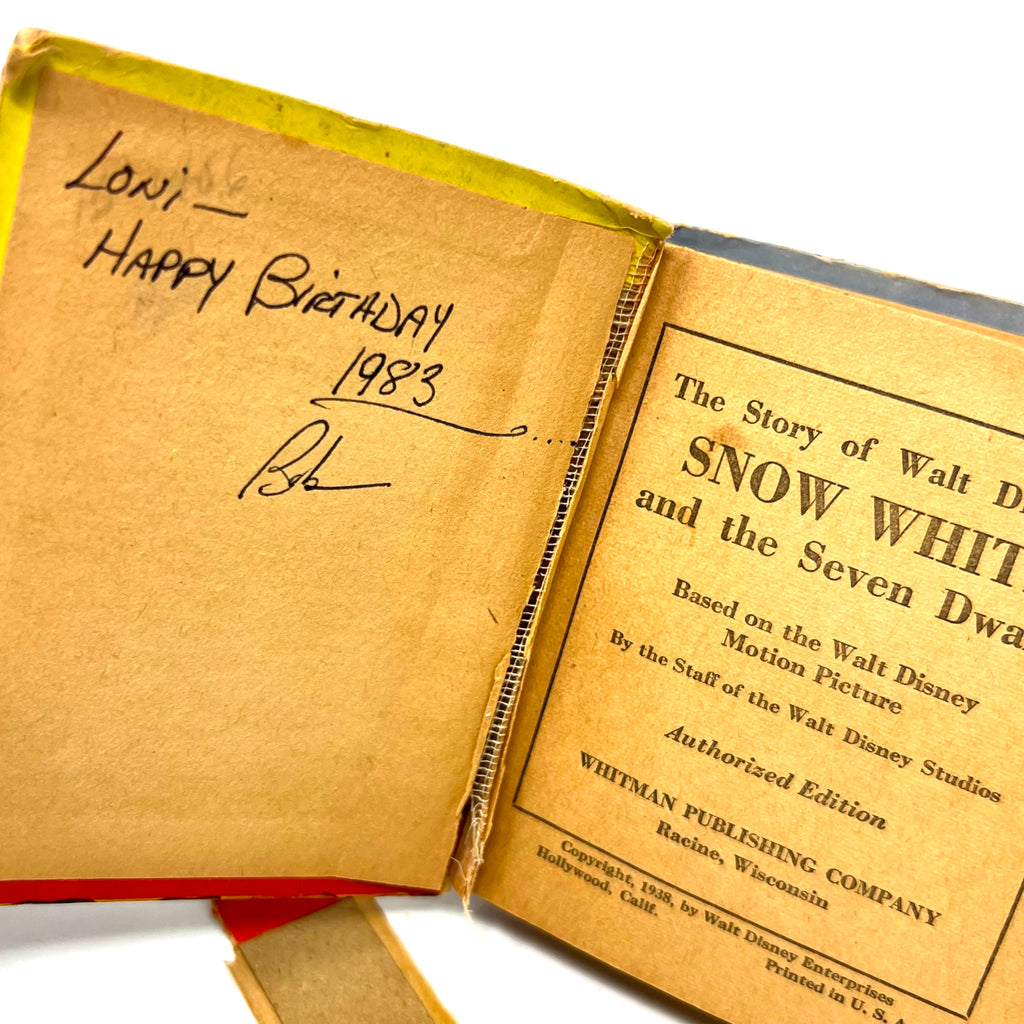 Loni —
Happy Birthday
1983
Bob
The Story of Walt Di
SNOW WHIT
and the Seven Dwa
Based on the Walt Disney
Motion Picture
By the Staff of the Walt Disney Studios
Authorized Edition
WHITMAN PUBLISHING COMPANY
Racine, Wisconsin
Copyright, 1938, by Walt Disney Enterprises
Hollywood, Calif.
Printed in U. S. A